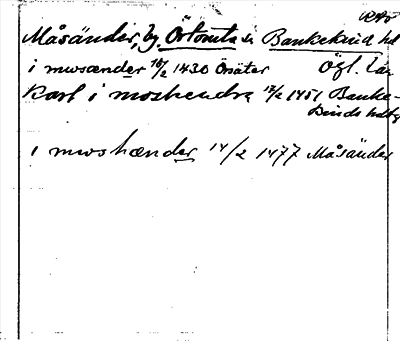 RAP
Måsänder, by, Örtomta sn Bankekind hd
i mwsænder 16/2 1430 Örsäter Ögl. län
Karl i moshendra 17/2 1451 Banke-
kinds hdbr
i mwshænder 14/2 1477 Måsänder